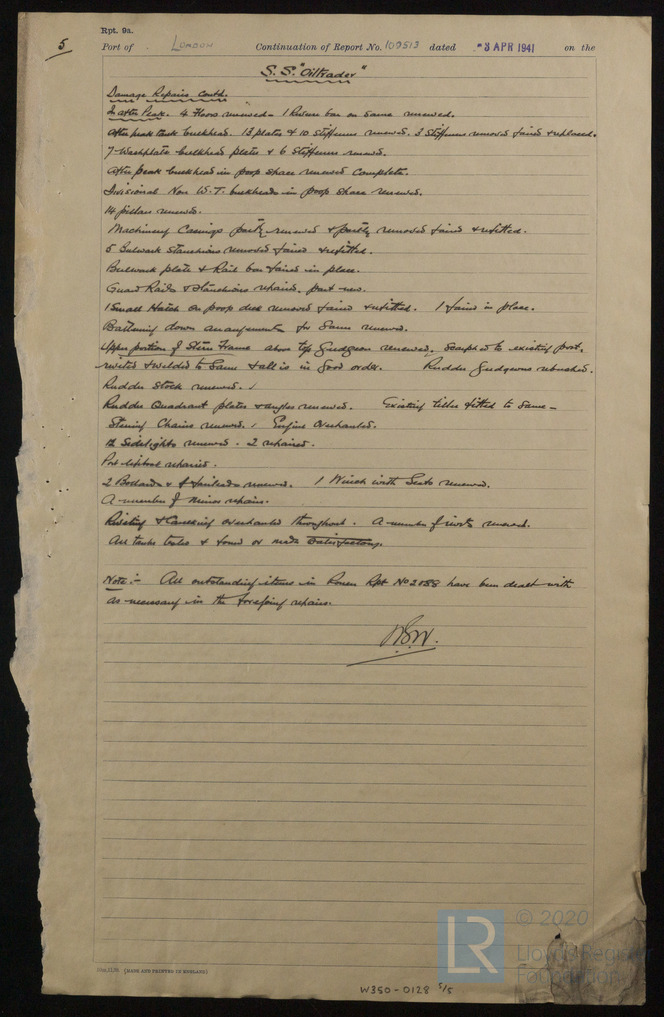 5
Rpt. 9a.
Port of London Continuation of Report No. 109513 dated -3 APR 1941 on the
S.S. "Oiltrader"
Damage Repairs Contd.
In after Peak. 4 Floors renewed - 1 Reverse bar on same renewed.
After peak tank bulkhead. 13 plates & 10 stiffeners renewed. 3 stiffeners removed faired & replaced.
7 Washplate bulkhead plates & 6 stiffeners renewed.
After peak bulkhead in poop space renewed complete.
Divisional Non W.T. bulkheads in poop space renewed.
14 pillars renewed.
Machinery Casings partly renewed & partly removed faired & refitted.
5 Bulwark stanchions removed faired & refitted.
Bulwark plate & Rail bar faired in place.
Guard Rails & stanchions repaired, part new.
1 Small Hatch on poop deck removed faired & refitted. 1 faired in place.
Battening down arrangements for same renewed.
Upper portion of Stern Frame above top Gudgeon renewed, scarphed to existing post,
riveted & welded to same & all is in good order. Rudder gudgeons rebushed.
Rudder stock renewed.
Rudder Quadrant plates & angles renewed. Existing tiller fitted to same -
Steering Chains renewed. Engine overhauled.
12 Sidelights renewed. 2 repaired.
Port repaired.
2 Bollards & fairleads renewed. 1 Winch with Seats renewed.
A number of minor repairs.
Riveting & Caulking overhauled throughout. A number of rivets renewed.
All tanks tested & found or made satisfactory.
Note:- All outstanding items in Rouen Rpt No 2158 have been dealt with
as necessary in the foregoing repairs.
(MADE AND PRINTED IN ENGLAND)
LR
© 2020
Lloyd's Register
Foundation
W350-0128 5/5